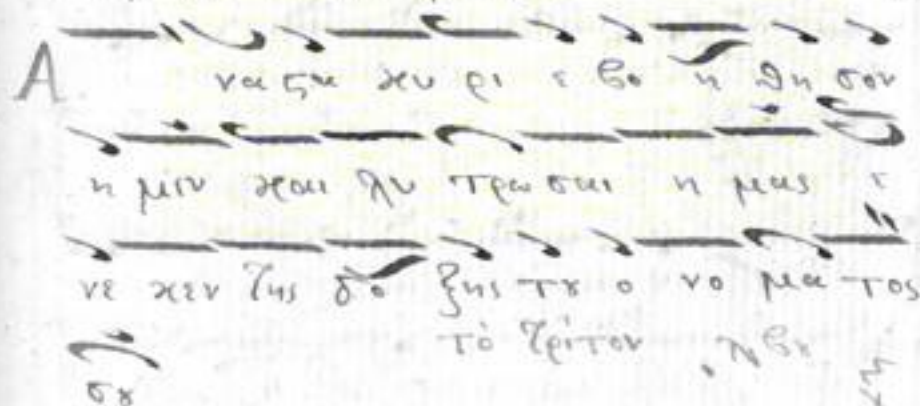 Α να ϛα κυ ρι ε βο η θη σον
η μιν και λυ τρω σαι η μας ε
νε κεν της δο ξης τȣ ο νο μα τος
το τρίτον
σȣ